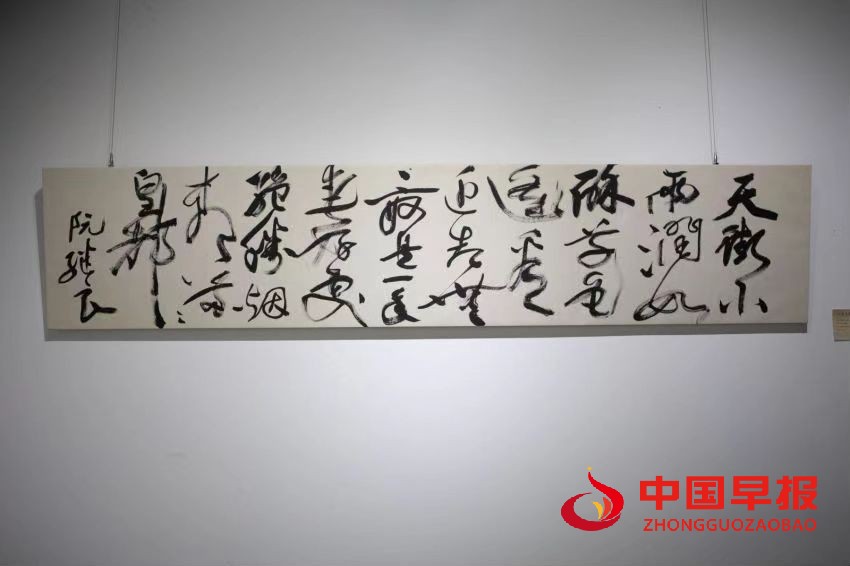 天街小
雨潤如
酥草色
遥看
近却無
最是一年
春好處
絕勝烟
柳滿
皇都
阮继民
中国早报
ZHONGGUOZAOBAO